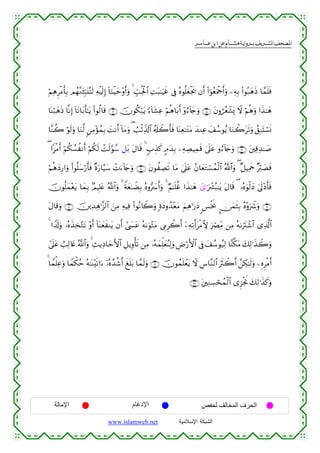 المصحف الشريف برواية هشام عن ابن عامر
فَلَمَّا ذَهَبُوا۟ بِهِۦ وَأَجْمَعُوٓا۟ أَن يَجْعَلُوهُ فِى غَيَٰبَتِ ٱلْجُبِّ ۚ وَأَوْحَيْنَآ إِلَيْهِ لَتُنَبِّئَنَّهُم بِأَمْرِهِمْ
هَٰذَا وَهُمْ لَا يَشْعُرُونَ ۝ وَجَآءُوٓ أَبَاهُمْ عِشَآءً يَبْكُونَ ۝ قَالُوا۟ يَٰٓأَبَانَآ إِنَّا ذَهَبْنَا
نَسْتَبِقُ وَتَرَكْنَا يُوسُفَ عِندَ مَتَٰعِنَا فَأَكَلَهُ ٱلذِّئْبُ ۖ وَمَآ أَنتَ بِمُؤْمِنٍ لَّنَا وَلَوْ كُنَّا
صَٰدِقِينَ ۝ وَجَآءُو عَلَىٰ قَمِيصِهِۦ بِدَمٍ كَذِبٍ ۚ قَالَ بَل سَّوَّلَتْ لَكُمْ أَنفُسُكُمْ أَمْرًا ۖ
فَصَبْرٌ جَمِيلٌ ۖ وَٱللَّهُ ٱلْمُسْتَعَانُ عَلَىٰ مَا تَصِفُونَ ۝ وَجَآءَتْ سَيَّارَةٌ فَأَرْسَلُوا۟ وَارِدَهُمْ
فَأَدْلَىٰ دَلْوَهُۥ ۖ قَالَ يَٰبُشْرَٰىَ هَٰذَا غُلَٰمٌ ۚ وَأَسَرُّوهُ بِضَٰعَةً ۚ وَٱللَّهُ عَلِيمٌۢ بِمَا يَعْمَلُونَ
۝ وَشَرَوْهُ بِثَمَنٍۭ بَخْسٍ دَرَٰهِمَ مَعْدُودَةٍ وَكَانُوا۟ فِيهِ مِنَ ٱلزَّٰهِدِينَ ۝ وَقَالَ
ٱلَّذِى ٱشْتَرَىٰهُ مِن مِّصْرَ لِٱمْرَأَتِهِۦٓ أَكْرِمِى مَثْوَىٰهُ عَسَىٰٓ أَن يَنفَعَنَآ أَوْ نَتَّخِذَهُۥ وَلَدًا ۚ
وَكَذَٰلِكَ مَكَّنَّا لِيُوسُفَ فِى ٱلْأَرْضِ وَلِنُعَلِّمَهُۥ مِن تَأْوِيلِ ٱلْأَحَادِيثِ ۚ وَٱللَّهُ غَالِبٌ عَلَىٰٓ
أَمْرِهِۦ وَلَٰكِنَّ أَكْثَرَ ٱلنَّاسِ لَا يَعْلَمُونَ ۝ وَلَمَّا بَلَغَ أَشُدَّهُۥٓ ءَاتَيْنَٰهُ حُكْمًا وَعِلْمًا ۚ
وَكَذَٰلِكَ نَجْزِى ٱلْمُحْسِنِينَ ۝
الحرف المخالف لحفص الإدغام الإمالة
الشبكة الإسلامية www.islamweb.net